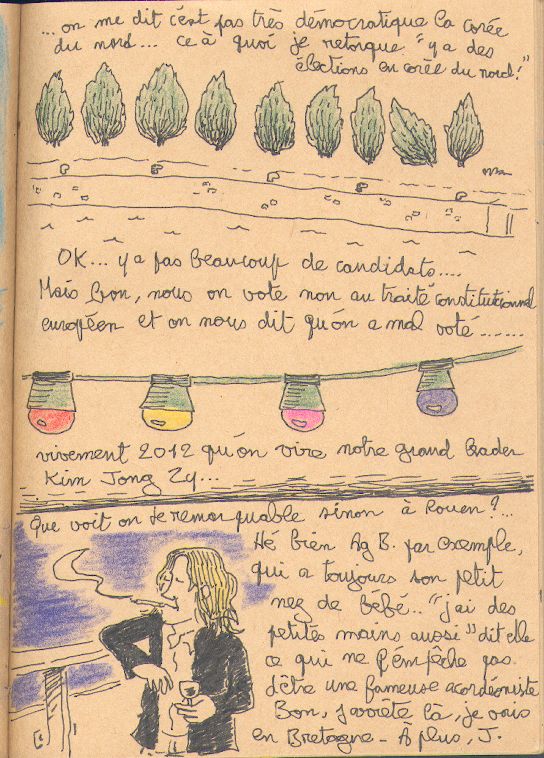 ... on me dit c'est pas très démocratique la corée
du nord... ce à quoi je retorque "y a des
élections en corée du nord!"
OK... y a pas beaucoup de candidats....
Mais bon, nous on vote non au traité constitutionnel
européen et on nous dit qu'on a mal voté......
vivement 2012 qu'on vire notre grand leader
Kim Jong Zy...
Que voit on de remarquable sinon à Rouen?...
Hé bien Ag B. par exemple,
qui a toujours son petit
nez de bébé.. "j'ai des
petites mains aussi" dit elle
ce qui ne l'empêche pas
d'être une fameuse acordéoniste
Bon, j'arrête là, je vais
en Bretagne - À plus, J.